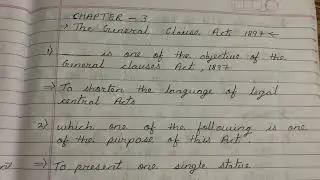 CHAPTER - 3
→ The General Clause Act 1897 ←
1) ______ is one of the objective of the
General clauses Act, 1897
⇒ To shorten the language of legal
central Acts
2) which one of the following is one
of the purpose of this Act.
⇒ To present one single statue